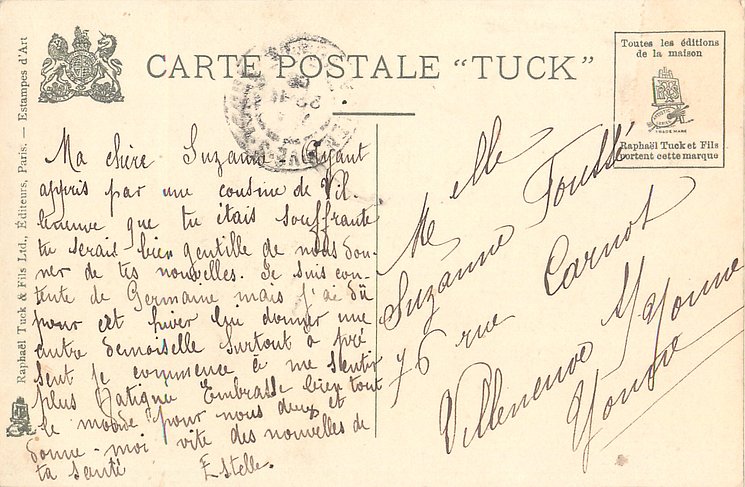 CARTE POSTALE "TUCK"
Toutes les éditions
de la maison
TRADE MARK
Raphaël Tuck et Fils
portent cette marque
Raphaël Tuck & Fils Ltd., Éditeurs, Paris. — Estampes d'Art
Ma chère Suzanne Ayant
appris par une cousine de Vil
leneuve que tu étais souffrante
tu serais bien gentille de nous don-
ner de tes nouvelles. Je suis con-
tente de Germaine mais j'ai dû
pour cet hiver lui donner une
autre demoiselle surtout à pré
sent je commence à me sentir
plus fatiguée Embrasse bien tout
le monde pour nous deux et
donne-moi vite des nouvelles de
ta santé Estelle.
Melle
Suzanne Toussé
76 rue Carnot
Villeneuve s/Yonne
Yonne